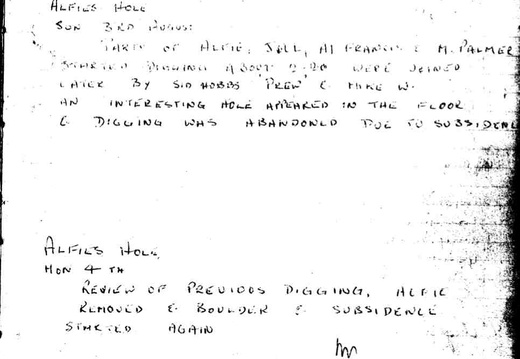 ALFIES HOLE
SUN 3RD AUGUST
PARTY OF ALFIE, JILL, AL FRANCIS & M. PALMER
STARTED DIGGING ABOUT 2.20 WERE JOINED
LATER BY SID HOBBS 'PREW' & MIKE W.
AN INTERESTING HOLE APPEARED IN THE FLOOR
& DIGGING WAS ABANDONED DUE TO SUBSIDENCE
ALFIES HOLE
MON 4TH
REVIEW OF PREVIOUS DIGGING, ALFIE
REMOVED & BOULDER & SUBSIDENCE
STARTED AGAIN